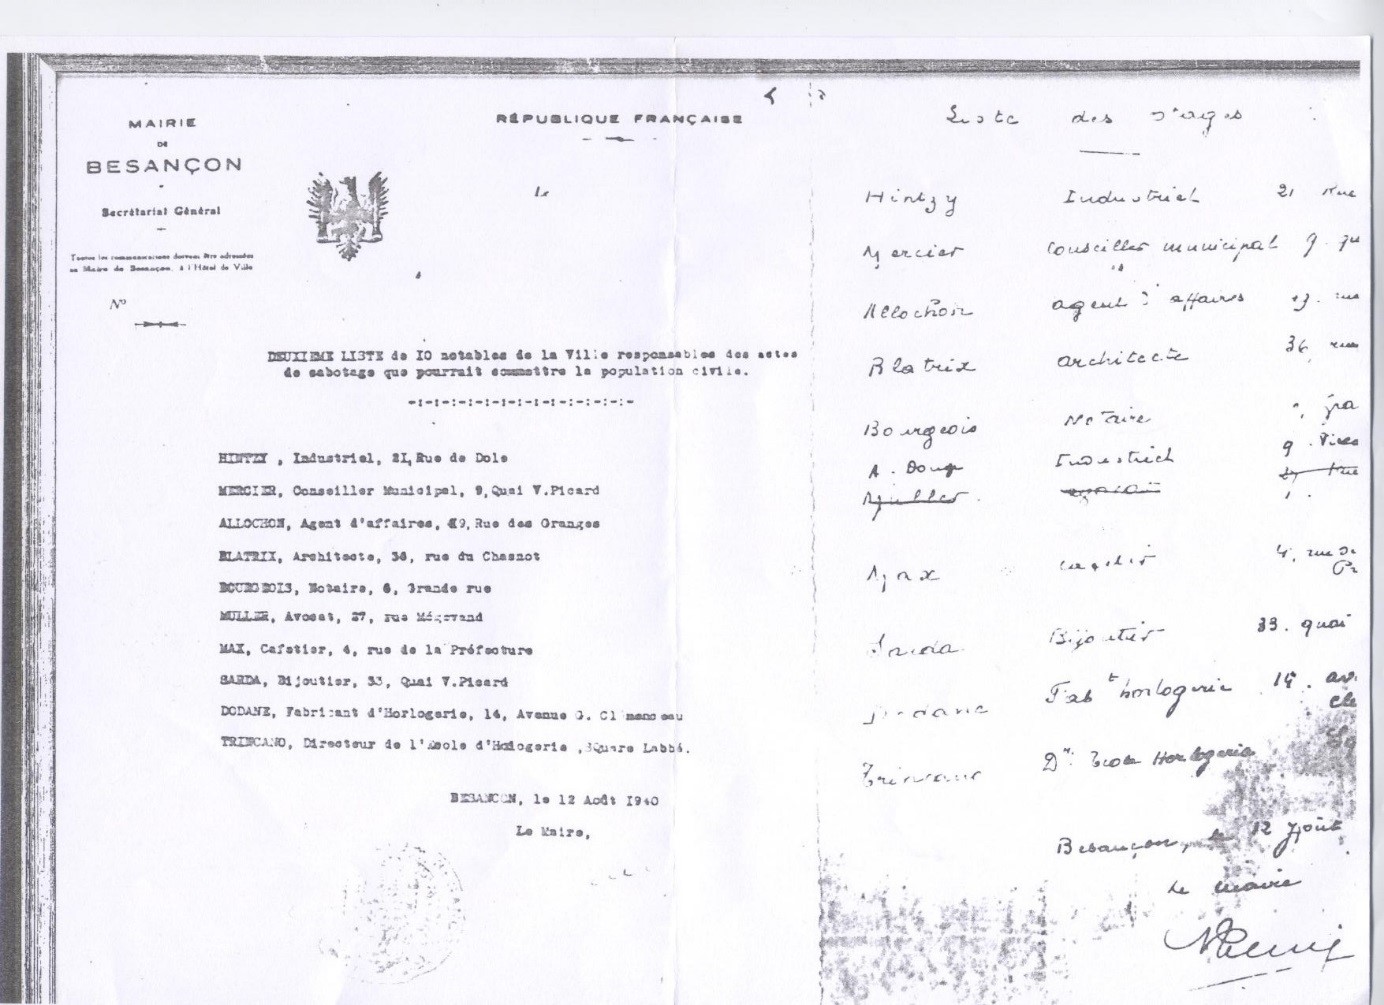 MAIRIE
DE
BESANÇON
Secrétariat Général
Toutes les communications doivent être adressées
au Maire de Besançon, à l'Hôtel de Ville
N°
RÉPUBLIQUE FRANÇAISE
Le
DEUXIEME LISTE de IO notables de la Ville responsables des actes
de sabotage que pourrait commettre la population civile.
-:-:-:-:-:-:-:-:-:-:-:-:-
HINTZY , Industriel, 2I, Rue de Dole
MERCIER, Conseiller Municipal, 9, Quai V.Picard
ALLOCHON, Agent d'affaires, 9, Rue des Granges
BLATRIX, Architecte, 36, rue du Chasnot
BOURGEOIS, Notaire, 6, Grande rue
MULLER, Avocat, 27, rue Mégevand
MAX, Cafetier, 4, rue de la Préfecture
SARDA, Bijoutier, 33, Quai V.Picard
DODANE, Fabricant d'Horlogerie, 14, Avenue G. Clémenceau
TRINCANO, Directeur de l'Ecole d'Horlogerie ,Square Labbé.
BESANCON, le 12 Août I940
Le Maire,
Liste des otages
Hintzy Industriel 21 Rue
Mercier Conseiller municipal 9
Allochon agent d'affaires rue
Blatrix architecte 36, rue
Bourgeois Notaire
A. Industriel 9
Muller rue
Max cafetier 4, rue
Sarda Bijoutier 33. quai
Dodane Fabt horlogerie 14. av.
Trincano Dr. Ecole Horlogerie
Besançon, le 12 Août
Le maire